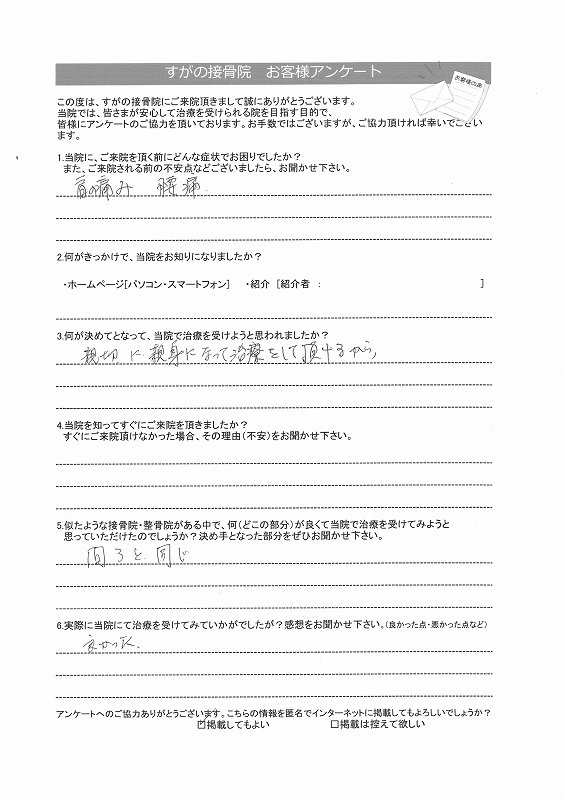 すがの接骨院　お客様アンケート
お客様の声
この度は、すがの接骨院にご来院頂きまして誠にありがとうございます。
当院では、皆さまが安心して治療を受けられる院を目指す目的で、
皆様にアンケートのご協力を頂いております。お手数ではございますが、ご協力頂ければ幸いでござい
ます。
1.当院に、ご来院を頂く前にどんな症状でお困りでしたか？
また、ご来院される前の不安点などございましたら、お聞かせ下さい。
首の痛み 腰痛
2.何がきっかけで、当院をお知りになりましたか？
・ホームページ[パソコン・スマートフォン]　・紹介 [紹介者 ： ]
3.何が決めてとなって、当院で治療を受けようと思われましたか？
親切に親身になって治療をして頂けるから
4.当院を知ってすぐにご来院を頂きましたか？
すぐにご来院頂けなかった場合、その理由(不安)をお聞かせ下さい。
5.似たような接骨院・整骨院がある中で、何(どこの部分)が良くて当院で治療を受けてみようと
思っていただけたのでしょうか？決め手となった部分をぜひお聞かせ下さい。
問3と同じ
6.実際に当院にて治療を受けてみていかがでしたが？感想をお聞かせ下さい。(良かった点・悪かった点など)
良かった。
アンケートへのご協力ありがとうございます。こちらの情報を匿名でインターネットに掲載してもよろしいでしょうか？
☑掲載してもよい　□掲載は控えて欲しい